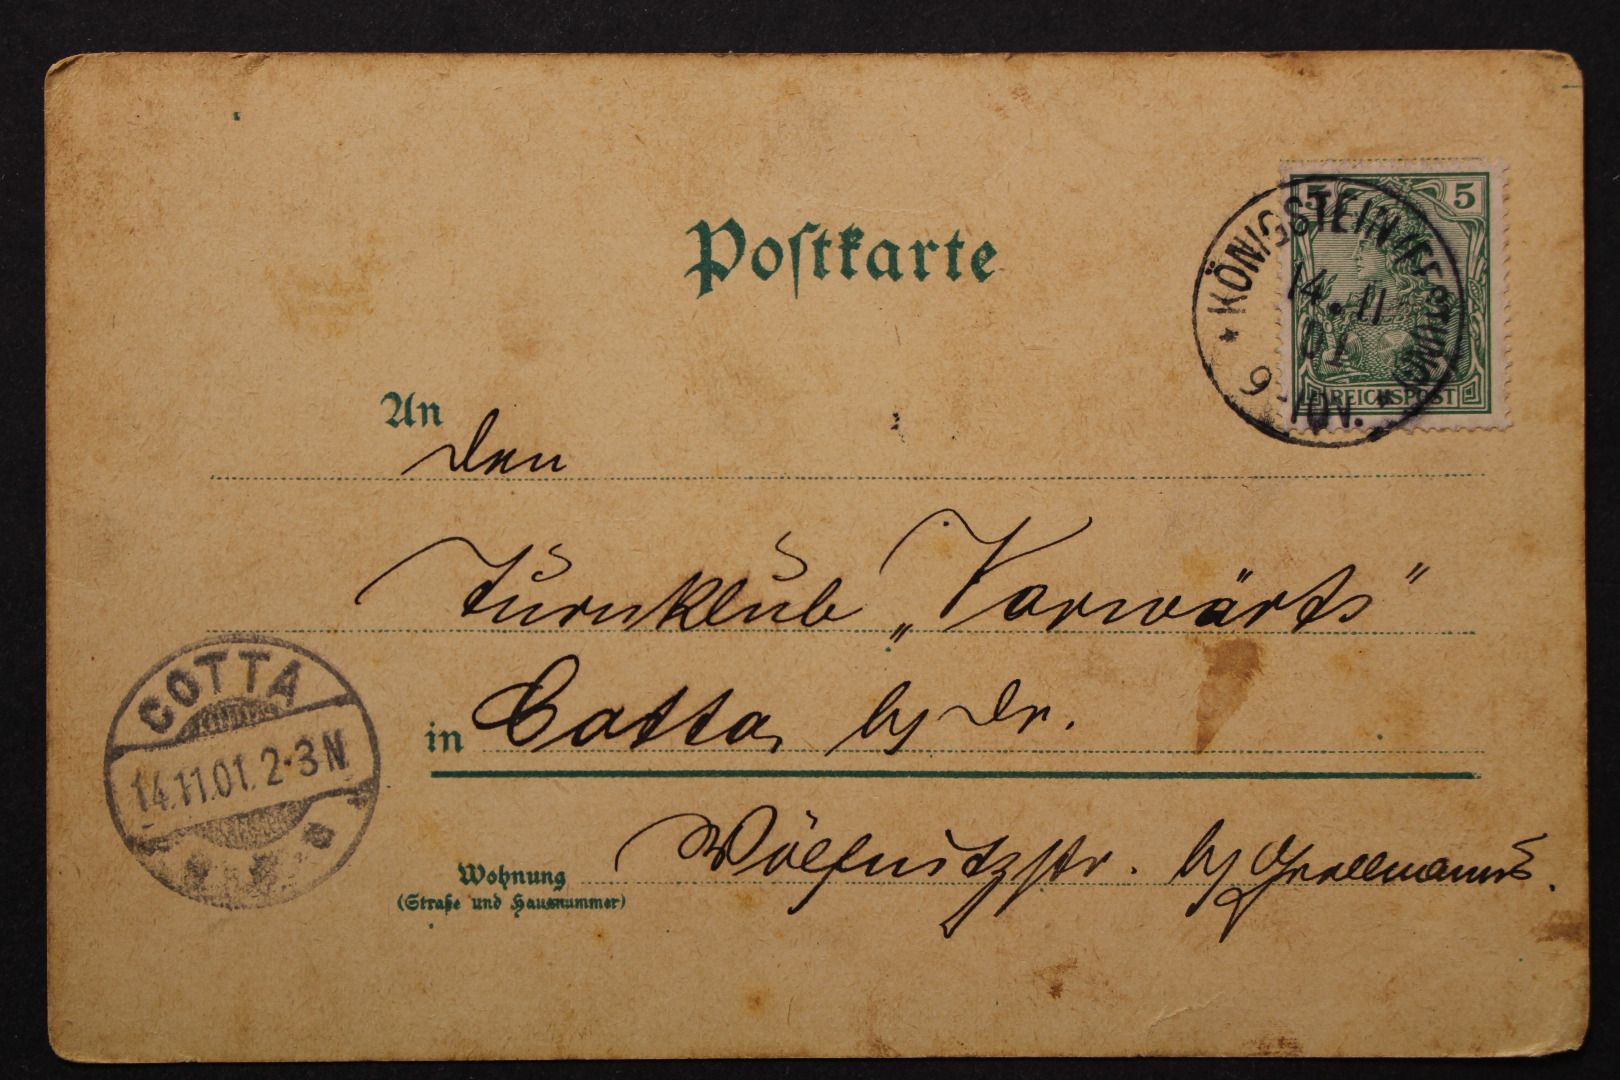 Postkarte
5 5
REICHSPOST
KÖNIGSTEIN (FESTUNG)
14.11
01
9-10V.
An
den
Turnklub „Vorwärts"
in Cotta, bj Dr.
COTTA
14.11.01.2-3N
Wohnung
(Straße und Hausnummer)
Wölfnitzstr. bj Grollmanns.